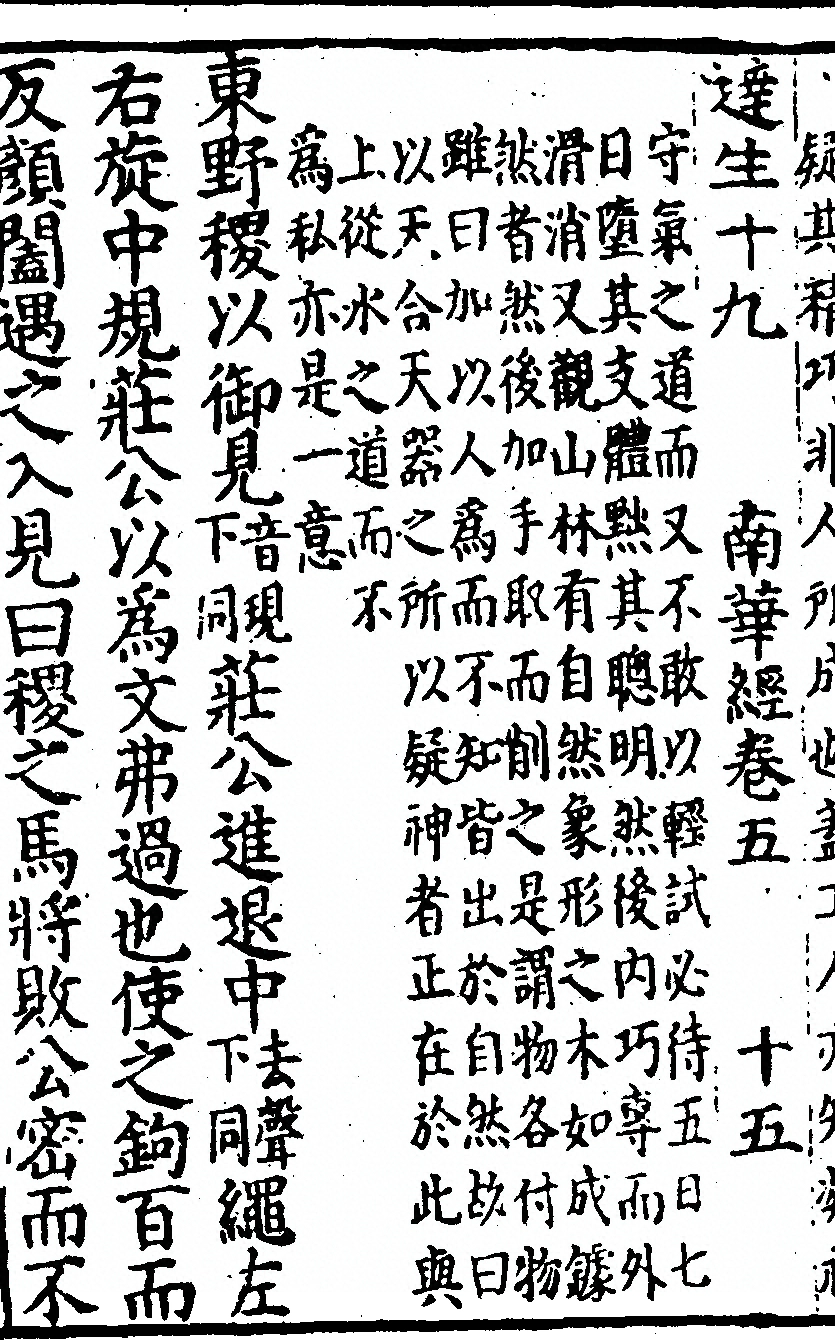 疑其精巧非人所成也蓋工人亦
達生十九　南華經卷五　十五
守氣之道而又不敢以輕試必待五日七
日墮其支體黜其聰明然後內巧專而外
滑消又觀山林有自然象形之木如成鐻
然者然後加手取而削之是謂物各付物
雖曰加以人為而不知皆出於自然故曰
以天合天器之所以疑神者正在於此與
上從水之道而不
為私亦是一意
東野稷以御見音現下同莊公進退中去聲下同繩左
右旋中規莊公以為文弗過也使之鉤百而
反顏闔遇之入見曰稷之馬將敗公密而不